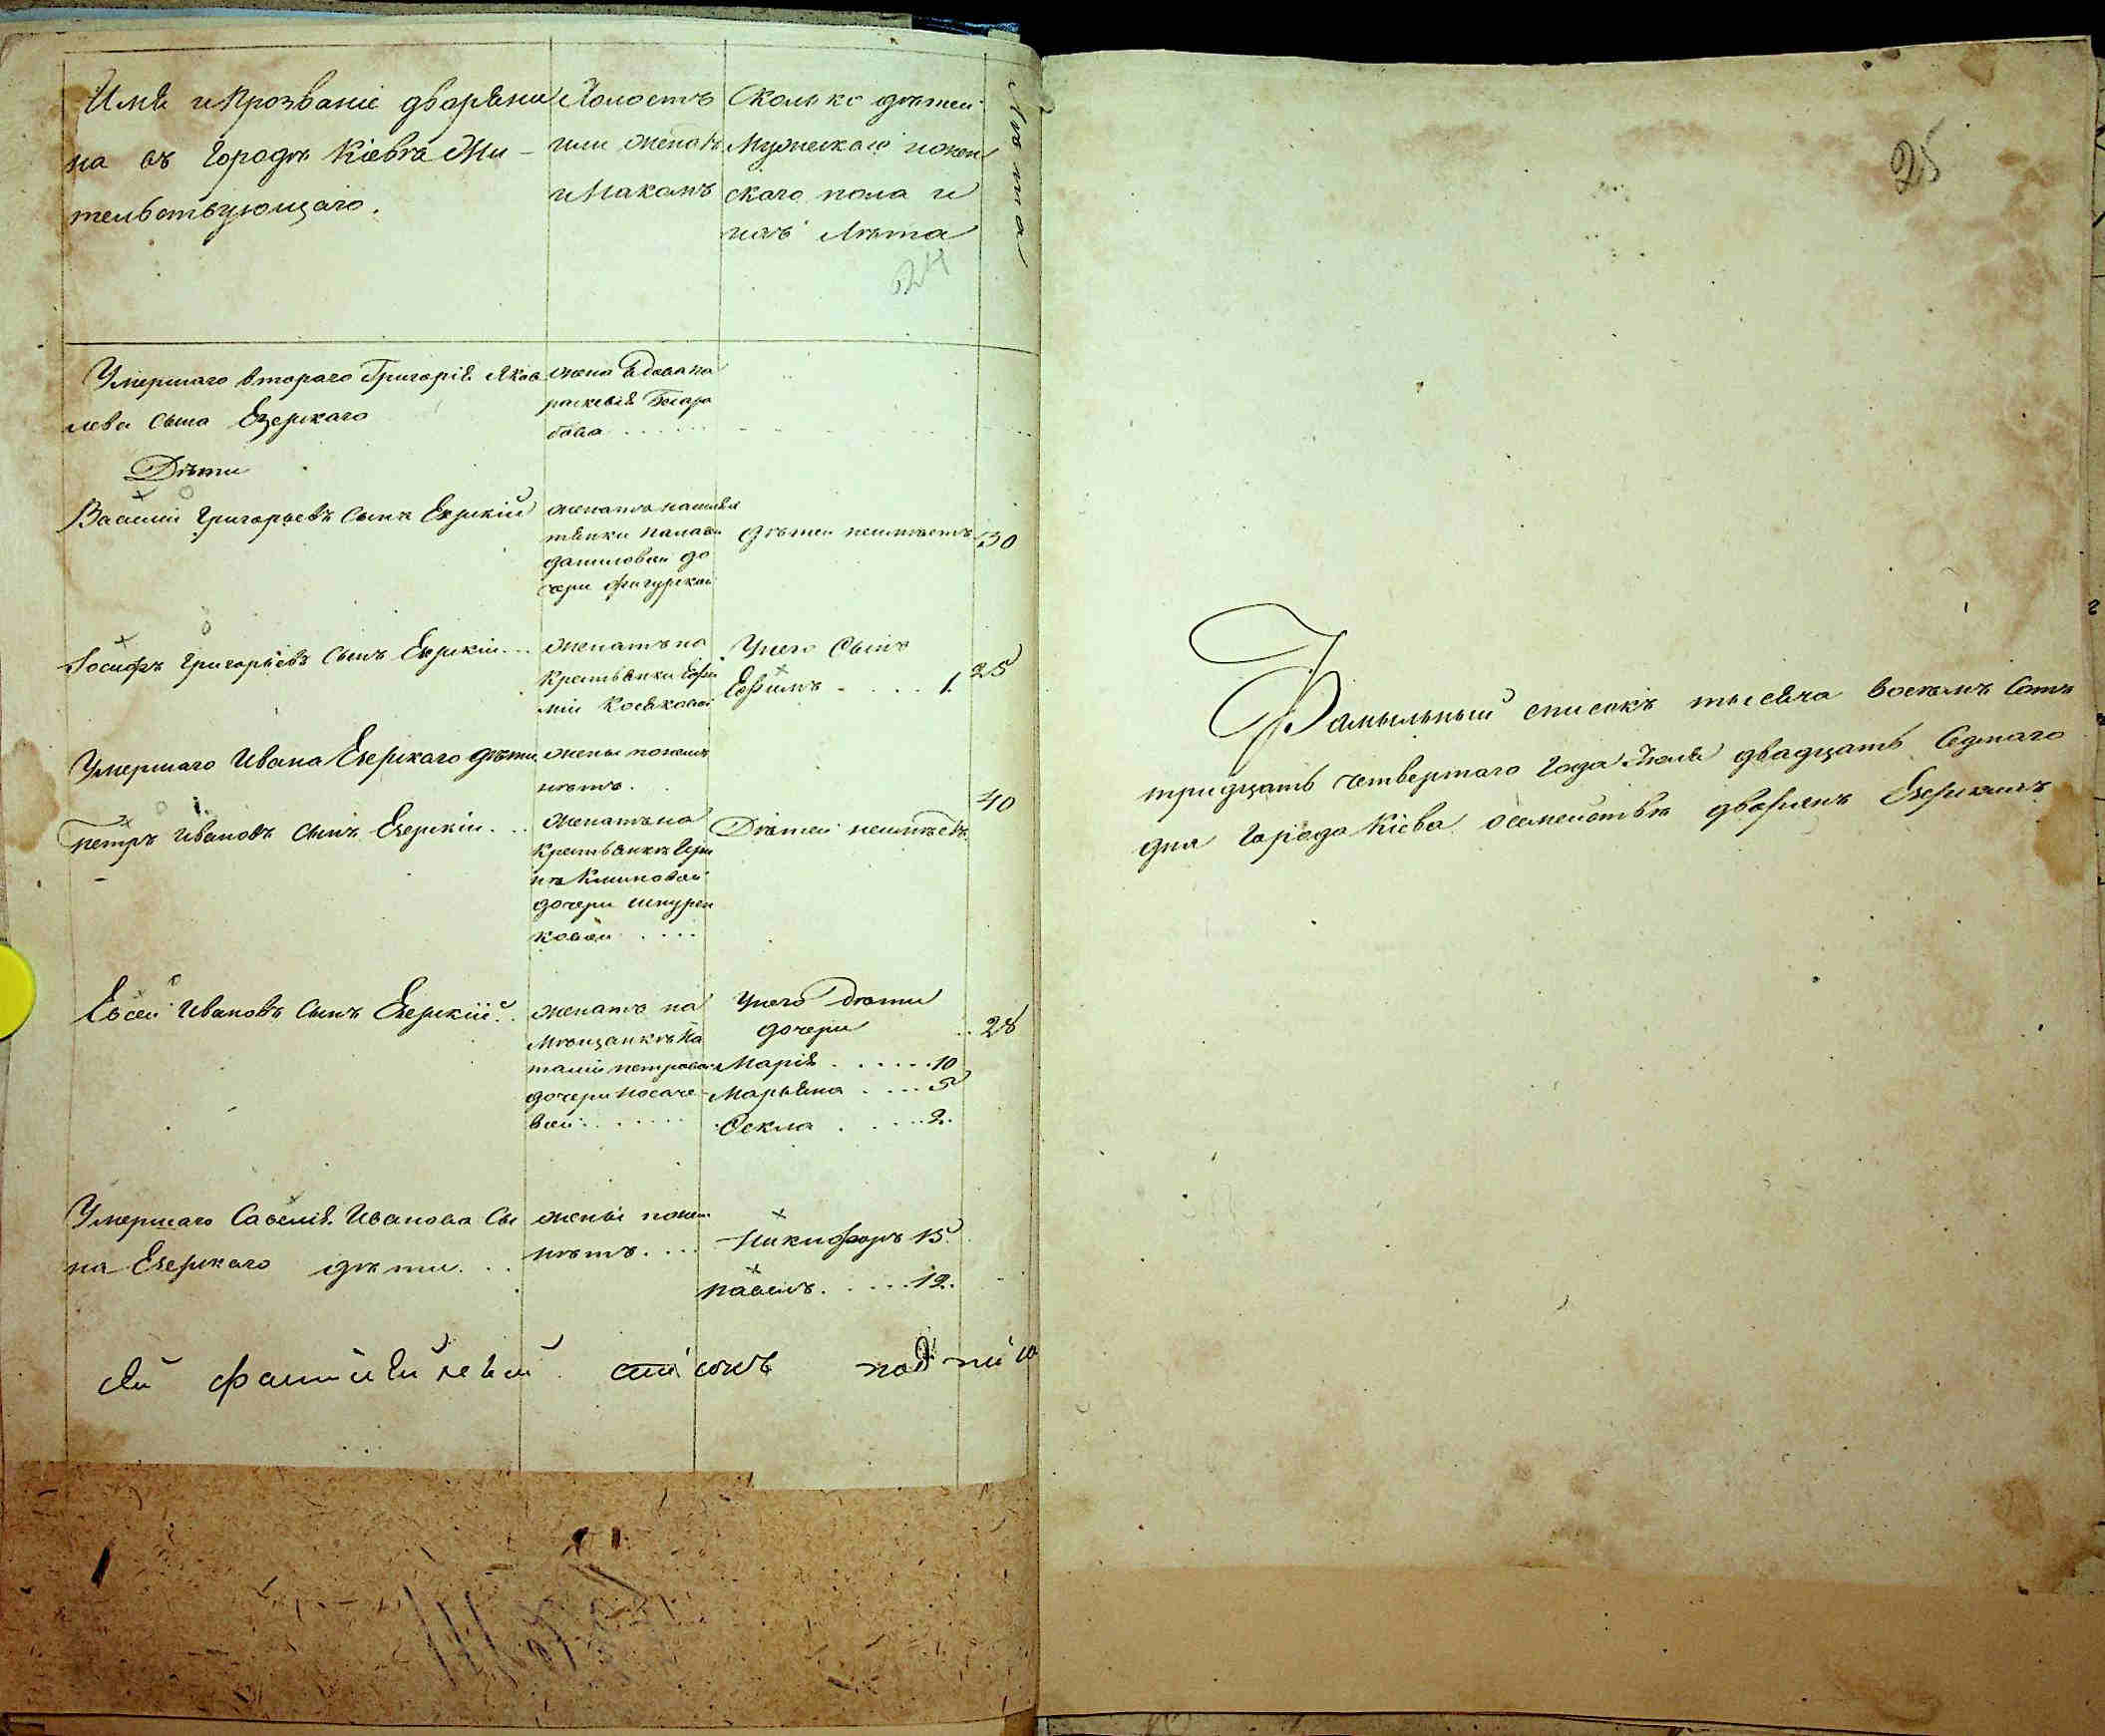 Имя и Прозваніе дворяни
на въ Городѣ Кіевѣ Жи-
тельствующаго.
Холостъ
или женатъ
и На комъ
Сколько дѣтей
Мужескаго и жен
скаго пола и
ихъ Лѣта
Лѣта
24
Умершаго втораго Григорія Яков
лева сына Езерскаго
жена вдова па
раскевія
Дѣти
Василій Григорьевъ сынъ Езерскій
женатъ на
даниловой до
чери
дѣтей неимѣетъ
30
Іосифъ Григорьевъ сынъ Езерскій ...
женатъ на
Крестьянки Ефи
міи
У него Сынъ
Ефимъ . . . . . 1.
25
Умершаго Ивана Езерскаго дѣти
жены
нѣтъ.
петръ Ивановъ сынъ Езерскій. . .
женатъ на
Крестьянкѣ
Климовой
дочери шпурен
ковой . . . .
Дѣтей неимѣетъ
40
Евсей Ивановъ сынъ Езерскій. .
женатъ на
Мѣщанкѣ На
таліи петровой
дочери Носаче-
вой . . . . . .
У него дѣти
дочери
Марія . . . . . . 10
Марьяна . . . . 5
Фекла . . . . . 2.
28
Умершаго Савелія Иванова Сы
на Езерскаго дѣти. . .
жены
нѣтъ. . . .
Никифоръ 15.
павелъ. . . . . 12.
списокъ
25
Фамыльный списокъ тысяча восемъ сотъ
тридцать четвертаго Года Іюля двадцать седмаго
дня Города Кіева о семействѣ дворянъ Езерскихъ